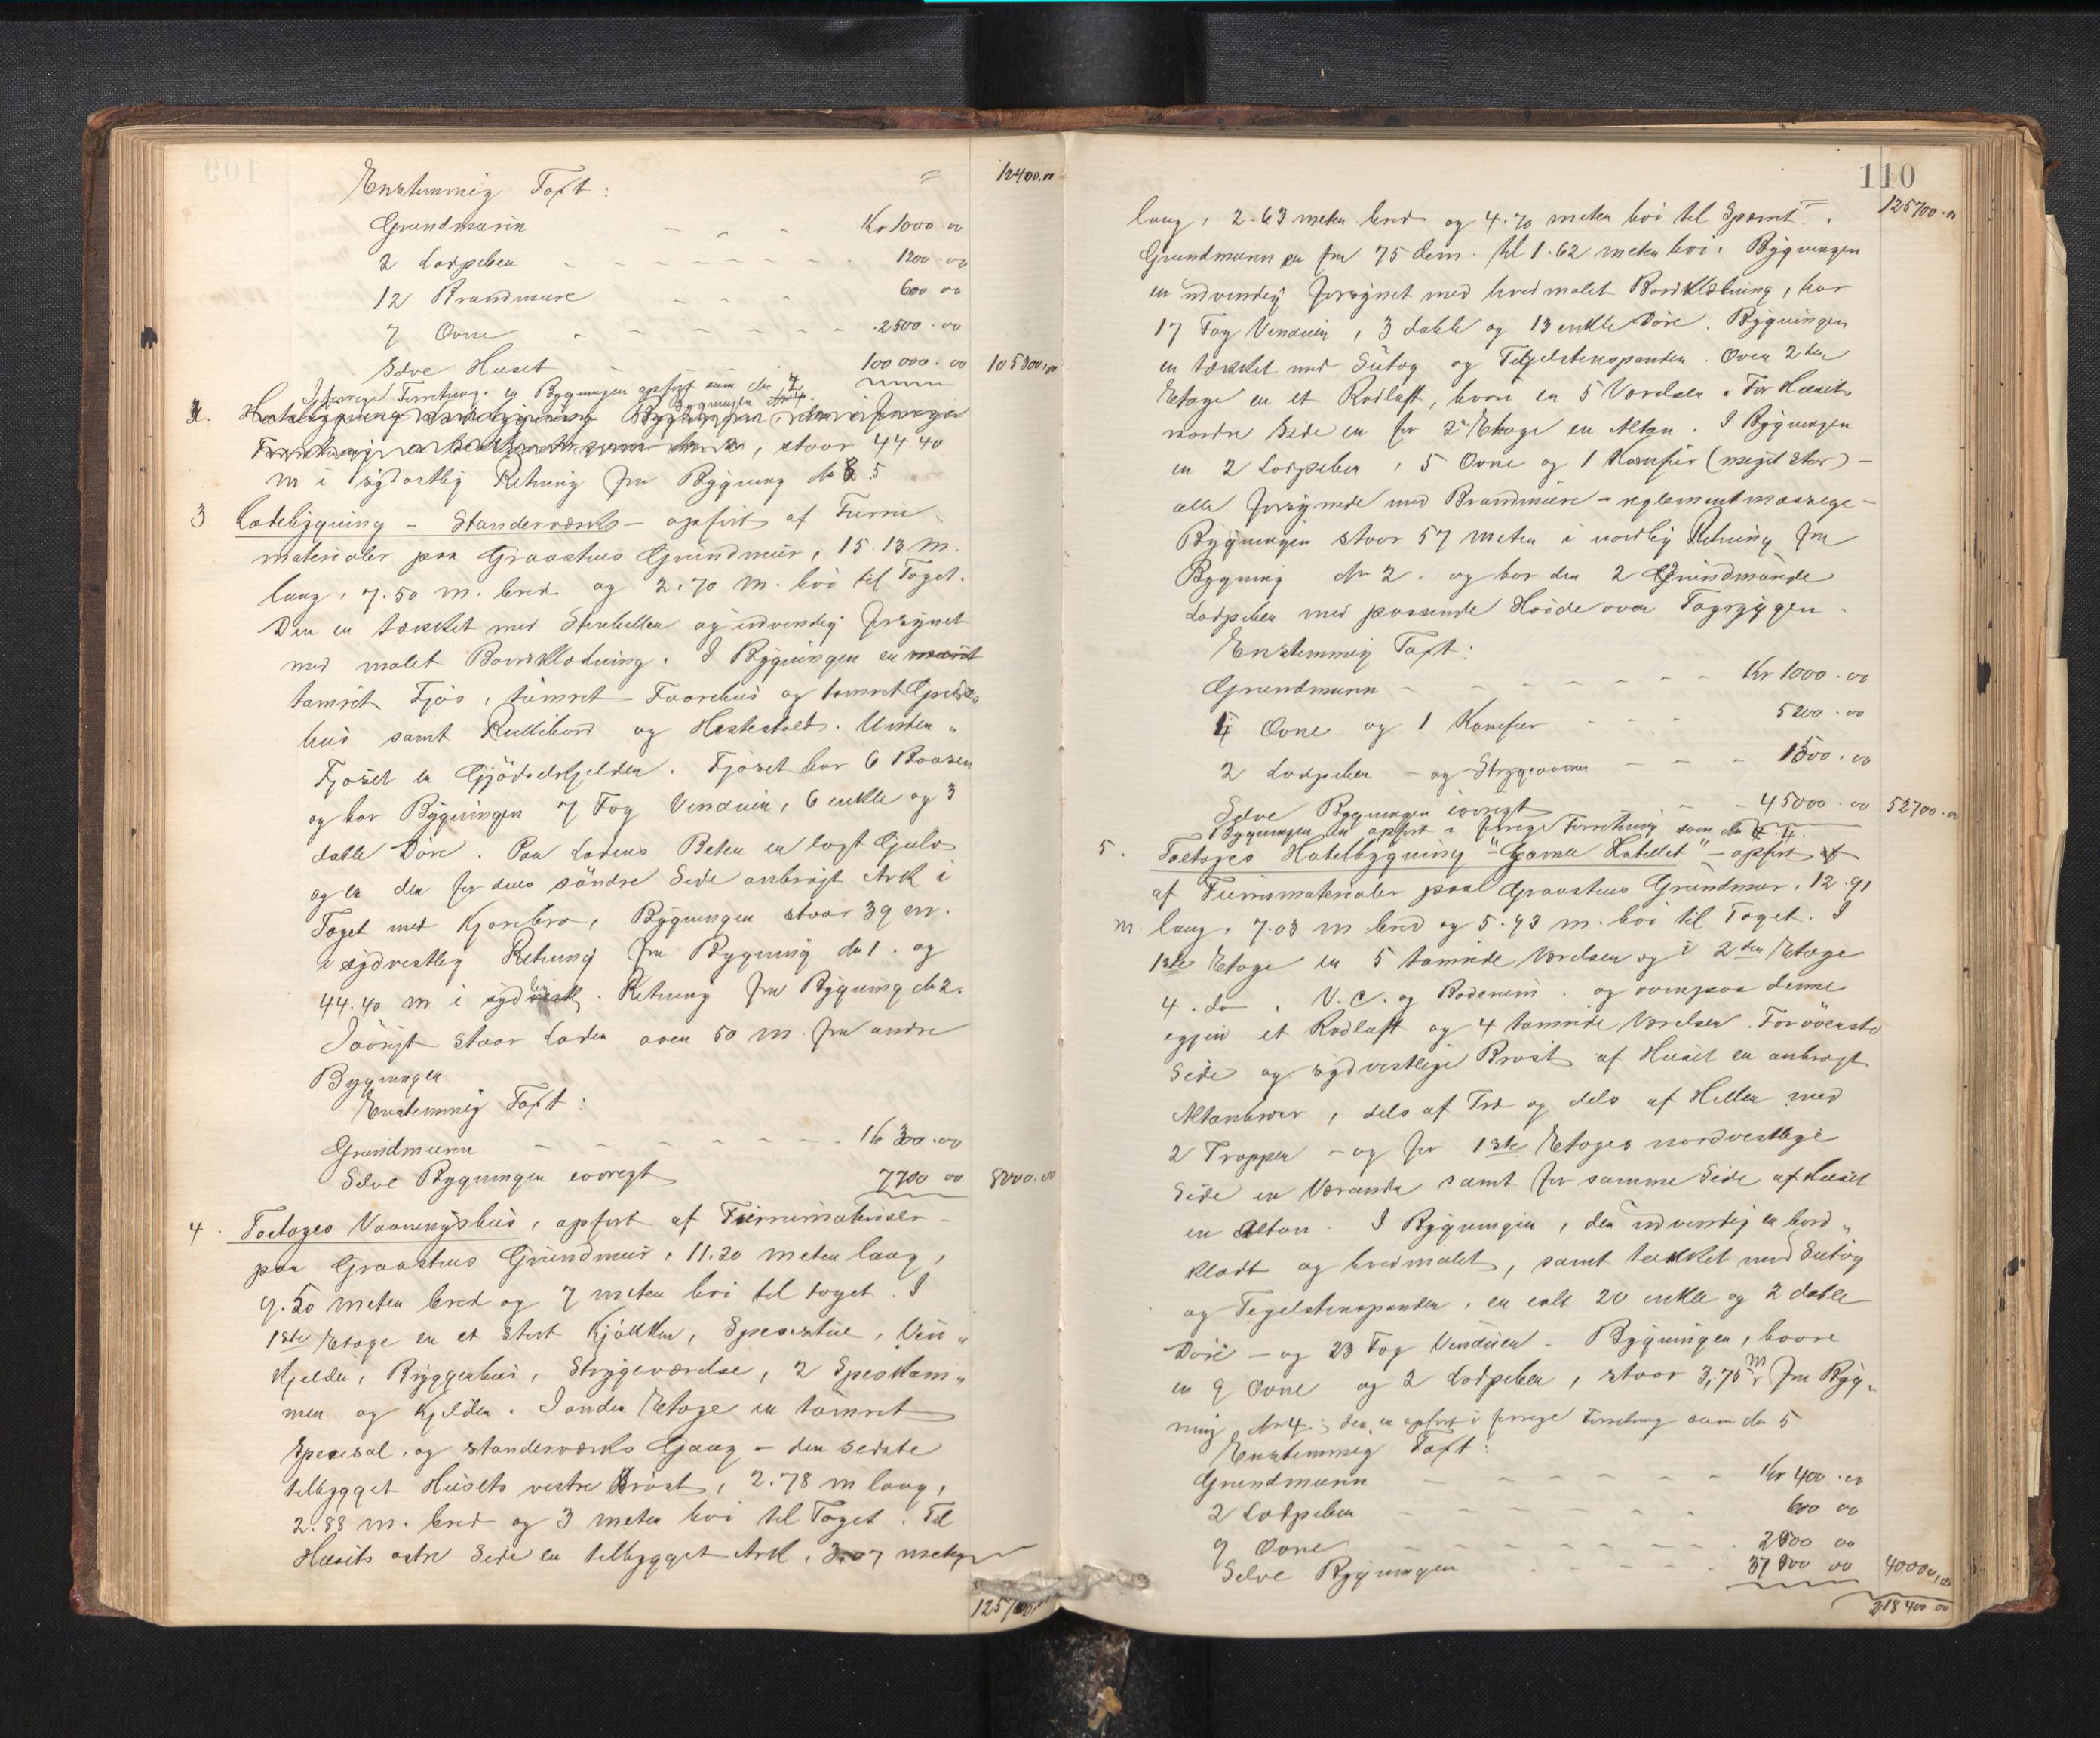 Enstemmig Taxt: = 12400.00
Grundmuren - - - Kr 1000.00
2 Lodpiber - - - - - - - 1200.00
12 Brandmure - - - 600 00
7 Ovne - - - - - - - 2500.00
Selve Huset - 100 000.00 105300,00
I forrige Forretning er Bygningen opført som No
2.
, staar 44.40
m i sydostlig Retning fra Bygning No 5
3 Ladebygning - Standerværks - opført af Furu
materialer paa Graastens Grundmur, 15.13 m.
lang, 7.50 m. bred og 2.70 m. høi til Taget.
Den er tækket med Stenheller og udvendig forsynet
med malet Bordklædning. I Bygningen er
tømret Fjøs, tømret Faarehus og tømret Grise
hus samt Rullebord og Hestestald. Under
Fjøset er Gjødselskjelder. Fjøset har 6 Baaser
og har Bygningen 7 Fag Vinduer, 6 enkle og 3
doble Døre. Paa Ladens Beter er lagt Gulv
og er der for dens søndre Side anbragt Ark i
Taget med Kjørebro, Bygningen staar 39 m.
i sydvestlig Retning fra Bygning No 1. og
44.40 m i sydvestl. Retning fra Bygning No 2.
Iøvrigt staar Laden over 50 m. fra andre
Bygninger
Enstemmig Taxt:
Grundmuren - - - - - - - Kr 300.00
Selve Bygningen iøvrigt 7700 00 8000.00
4. Toetages Vaaningshus, opført af Furumaterialer
paa Graastens Grundmur, 11.20 meter lang,
9.50 meter bred og 7 meter høi til taget. I
1ste Etage er et stort Kjøkken, Spisestue, Vin
kjelder, Bryggerhus, Strygeværelse, 2 Spiskam
mer og Kjelder. I anden Etage er tømret
Spisesal, og standerværks Gang - den sidste
tilbygget Husets vestre Brøst, 2.78 m lang,
2.88 m. bred og 3 meter høi til Taget. Til
Husets østre Side er tilbygget Ark, 3.07 meter
125700
110
125700.00
lang, 2.63 meter bred og 4.70 meter høi til
Grundmuren er fra 75 dem. til 1.62 meter høi. Bygningen
er udvendig forsynet med hvidmalet Bordklædning, har
17 Fag Vinduer, 3 doble og 13 enkle Døre. Bygningen
er tækket med Sutag og Teglstenspander. Over 2den
Etage er et Rodloft, hvori er 5 Værelser. For Husets
nordre Side er for 2. Etage en Altan. I Bygningen
er 2 Lodpiber, 5 Ovne og 1 Komfur (meget stor) -
alle forsynede med Brandmure - reglementmæssige -
Bygningen staar 57 meter i nordlig Retning fra
Bygning No 2. og har den 2 Grundmurede
Lodpiber med passende Høide over Tagryggen.
Enstemmig Taxt:
Grundmuren - - - - - - - Kr 1000.00
5 Ovne og 1 Komfur - - - - 5200.00
2 Lodpiber - og Strygeovnen - - - 1500.00
Selve Bygningen iøvrigt - - 45000.00 52700.00
Bygningen er opført i forrige Forretning som No 4.
5. Toetages Hotelbygning "Gamle Hotellet" - opført
af Furumaterialer paa Graastens Grundmur, 12.91
m. lang, 7.03 m bred og 5.93 m. høi til Taget. I
1ste Etage er 5 tømrede Værelser og i 2den Etage
4. do , V.C. og Baderum. og ovenpaa denne
igjen et Rodloft og 4 tømrede Værelser. For østre
Side og sydvestlige Brøst af Huset er anbragt
Altaner, dels af Træ og dels af Heller med
2 Trapper - og for 1ste Etages nordvestlige
Side er Veranda samt for samme Side af Huset
en Altan. I Bygningen, der udvendig er bord
klædt og hvidmalet, samt tækket med Sutag
og Tegelstenspander, er ialt 20 enkle og 2 doble
Døre - og 23 Fag Vinduer. Bygningen, hvori
er 9 Ovne og 2 Lodpiber, staar 3,75 m fra Byg
ning No 4; den er opført i forrige Forretning som No 5
Enstemmig Taxt:
Grundmuren - - - - - - - Kr 400.00
2 Lodpiber - - - - - - 600 00
9 Ovne - - - - - - - 2000 00
Selve Bygningen - - - - 37000 00 40000,00
218400 00